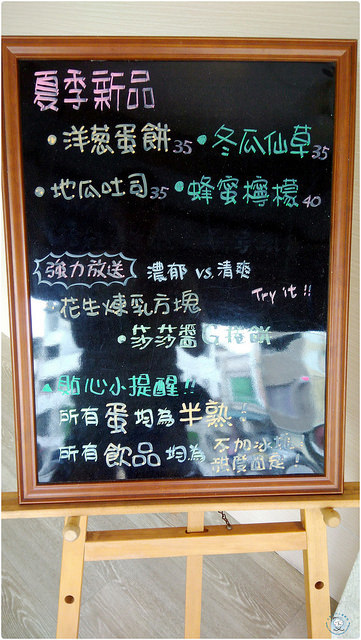 夏季新品
• 洋蔥蛋餅35 • 冬瓜仙草35
• 地瓜吐司35 • 蜂蜜檸檬40
強力放送 濃郁 vs. 清爽
Try it !!
• 花生煉乳方塊
• 莎莎醬
▲ 貼心小提醒!!
所有蛋均為半熟!
所有飲品均為 不加冰塊
甜度固定!